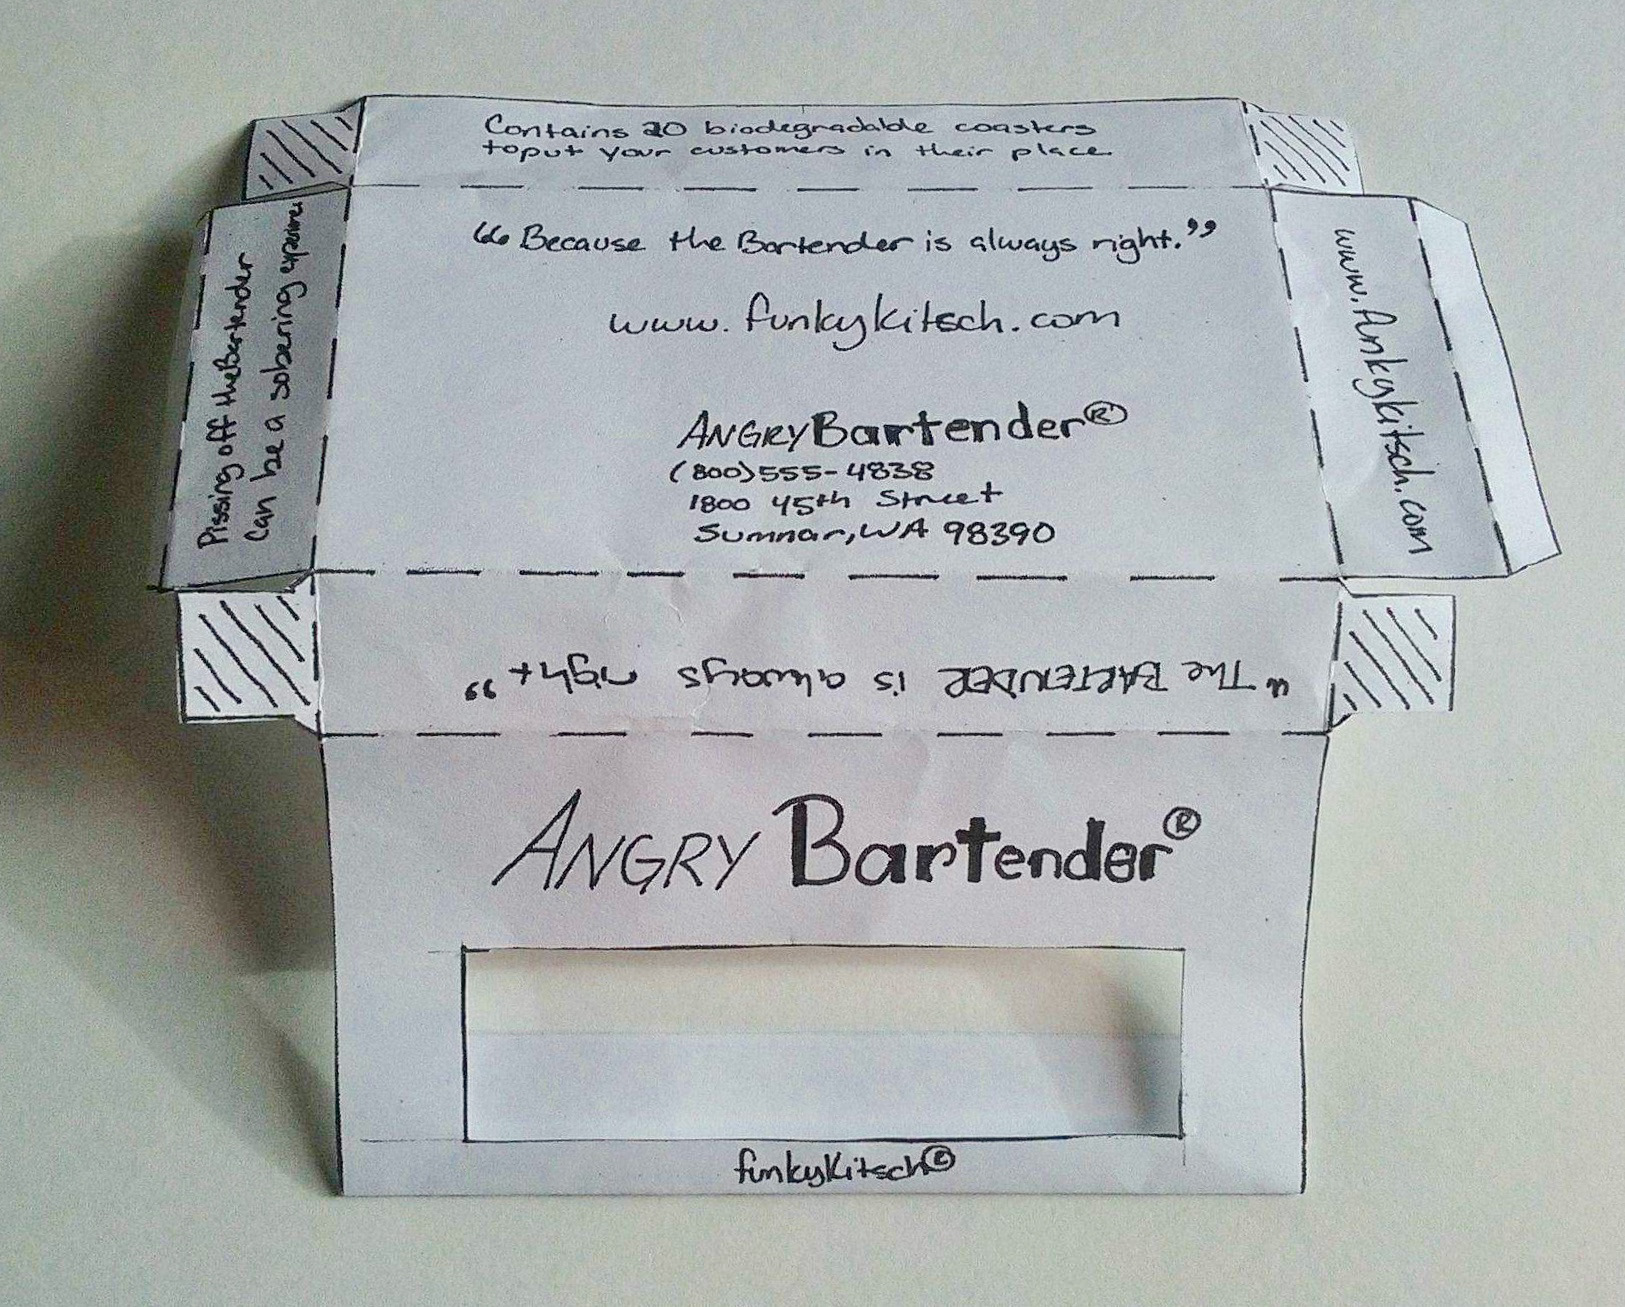 Contains 20 biodegradable coasters
toput your customers in their place.
"Because the Bartender is always right."
www.funkykitsch.com
ANGRYBartender®
(800)555-4838
1800 45th Street
Sumnar,WA 98390
Pissing off the Bartender
Can be a sobering
www.funkykitsch.com
"The BARTENDER is always right"
ANGRY Bartender®
funkyKitsch®